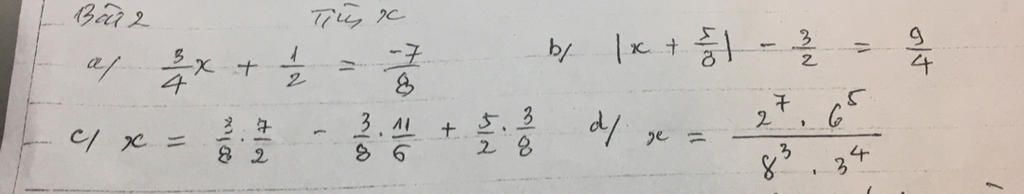 Bài 2 Tìm x
a/ 3/4 x + 1/2 = -7/8 b/ |x + 5/8| - 3/2 = 9/4
c/ x = 3/8 . 7/2 - 3/8 . 11/6 + 5/2 . 3/8 d/ x = 2^7 . 6^5 / 8^3 . 3^4